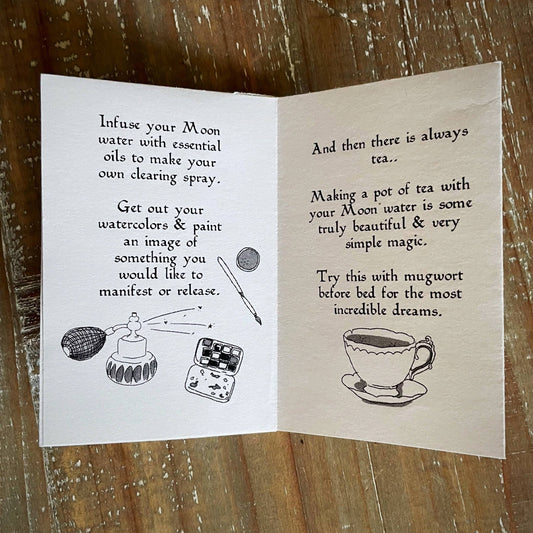 Infuse your Moon
water with essential
oils to make your
own clearing spray.
Get out your
watercolors & paint
an image of
something you
would like to
manifest or release.
And then there is always
tea..
Making a pot of tea with
your Moon water is some
truly beautiful & very
simple magic.
Try this with mugwort
before bed for the most
incredible dreams.